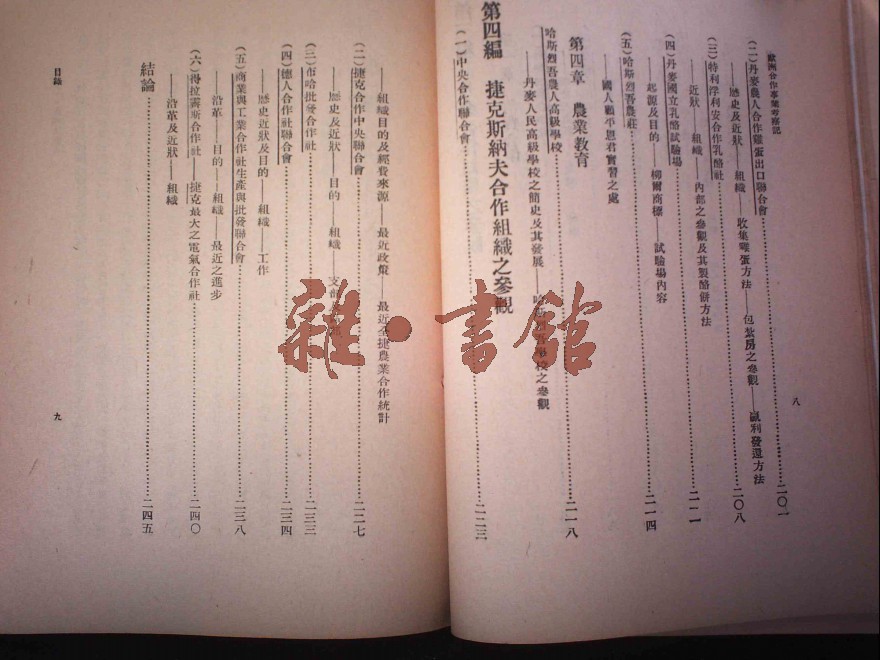 歐洲合作事業考察記
(二)丹麥農人合作雞蛋出口聯合會……二〇一
——歷史及近狀——組織——收集雞蛋方法——包紮房之參觀——贏利發還方法
(三)特利浮利安合作乳酪社……二〇八
——近狀——組織——內部之參觀及其製酪併方法
(四)丹麥國立乳酪試驗場……二一一
——起源及目的——柳爾商標——試驗場內容
(五)哈斯烈吾農莊……二一四
——國人顧小恩君實習之處
第四章 農業教育
哈斯烈吾農人高級學校……二一八
——丹麥人民高級學校之簡史及其發展——哈斯烈吾學校之參觀
第四編 捷克斯納夫合作組織之參觀
(一)中央合作聯合會……二二三
八
——組織目的及經費來源——最近政策——最近全捷農業合作統計
(二)捷克合作中央聯合會……二二七
——歷史及近狀——目的——組織——支部
(三)布哈批發合作社……二三三
(四)德人合作社聯合會……二三四
——歷史近狀及目的——組織——工作
(五)商業與工業合作社生產與批發聯合會……二三八
——沿革——目的——組織——最近之進步
(六)得拉霽斯合作社——捷克最大之電氣合作社……二四〇
——沿革及近狀——組織
結論……二四五
目錄
九
雜·書館